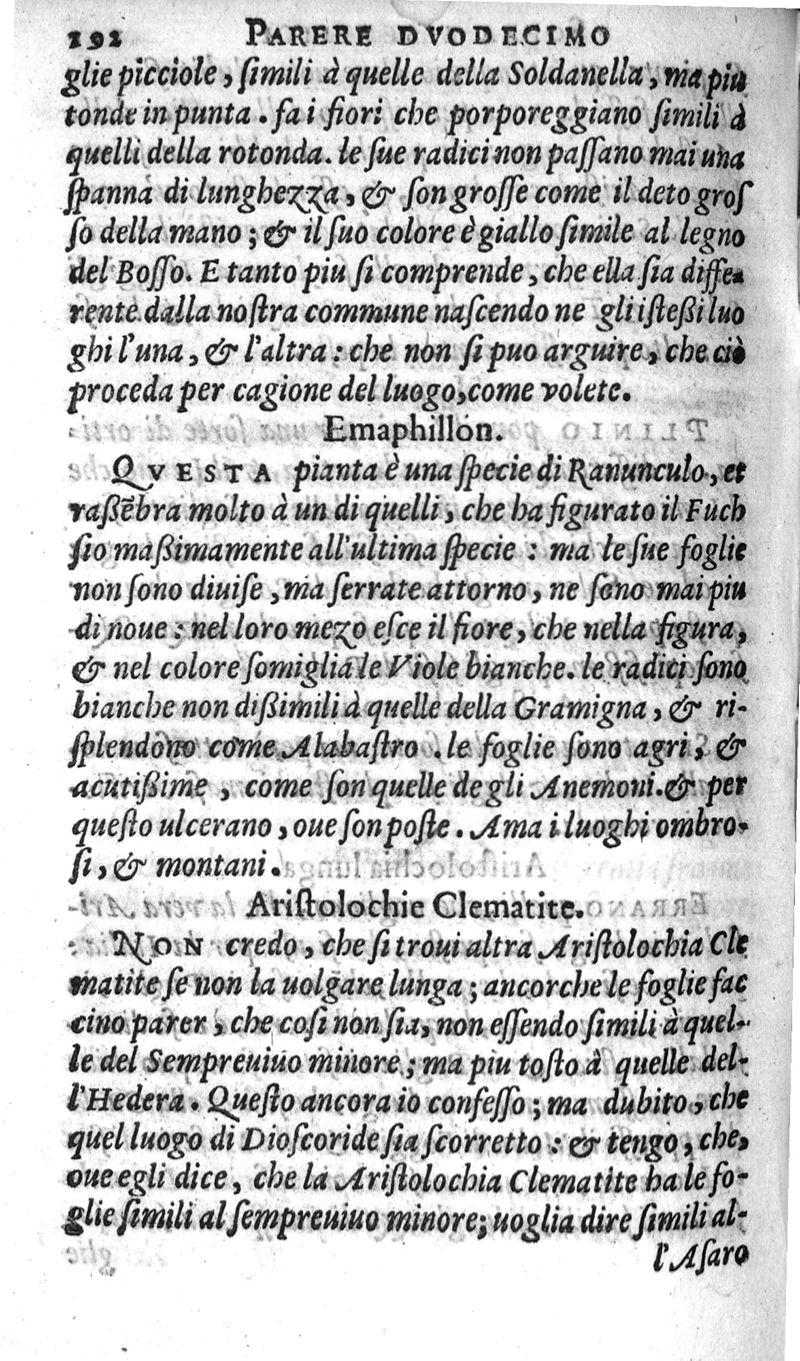 292 PARERE DVODECIMO
glie picciole, ſimili à quelle della Soldanella, ma piu
tonde in punta. fa i fiori che porporeggiano ſimili à
quelli della rotonda. le ſue radici non paſſano mai una
ſpanna di lunghezza, & ſon groſſe come il deto groſ
ſo della mano; & il ſuo colore è giallo ſimile al legno
del Boſſo. E tanto piu ſi comprende, che ella ſia diffe-
rente dalla noſtra commune naſcendo ne gli iſteßi luo
ghi l'una, & l'altra: che non ſi puo arguire, che ciò
proceda per cagione del luogo, come volete.
Emaphillon.
QVESTA pianta è una ſpecie di Ranunculo, et
raßẽbra molto à un di quelli, che ha figurato il Fuch
ſio maßimamente all'ultima ſpecie: ma le ſue foglie
non ſono diuiſe, ma ſerrate attorno, ne ſono mai piu
di noue: nel loro mezo eſce il fiore, che nella figura,
& nel colore ſomiglia le Viole bianche. le radici ſono
bianche non dißimili à quelle della Gramigna, & ri-
ſplendono come Alabaſtro. le foglie ſono agri, &
acutißime, come ſon quelle de gli Anemoni. & per
queſto ulcerano, oue ſon poſte. Ama i luoghi ombro-
ſi, & montani.
Ariſtolochie Clematite.
NON credo, che ſi troui altra Ariſtolochia Cle
matite ſe non la uolgare lunga; ancorche le foglie fac
cino parer, che coſi non ſia, non eſſendo ſimili à quel-
le del Sempreuiuo minore; ma piu toſto à quelle del-
l'Hedera. Queſto ancora io confeſſo; ma dubito, che
quel luogo di Dioſcoride ſia ſcorretto: & tengo, che,
oue egli dice, che la Ariſtolochia Clematite ha le fo-
glie ſimili al ſempreuiuo minore; uoglia dire ſimili al-
l'Aſaro